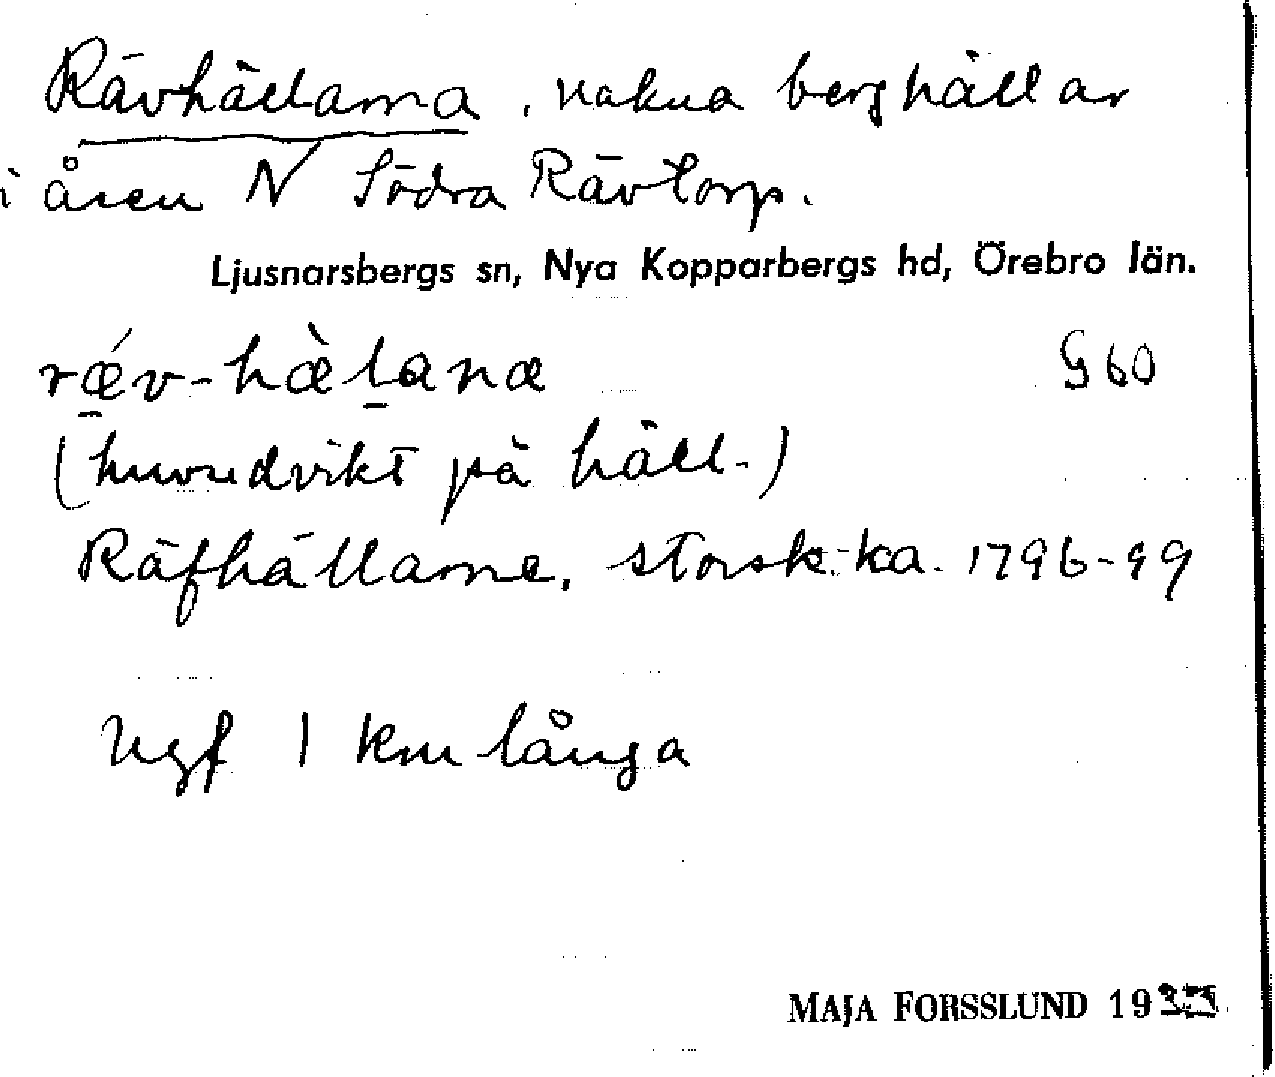 Rävhällarna, nakna berghällar
i åsen N Södra Rävtorp.
Ljusnarsbergs sn, Nya Kopparbergs hd, Örebro län.
rǽv-hæ̀lana G 60
(huvudvikt på häll-)
Räfhällarne, storsk.-ka. 1796-99
Ugf 1 km långa
MAJA FORSSLUND 19